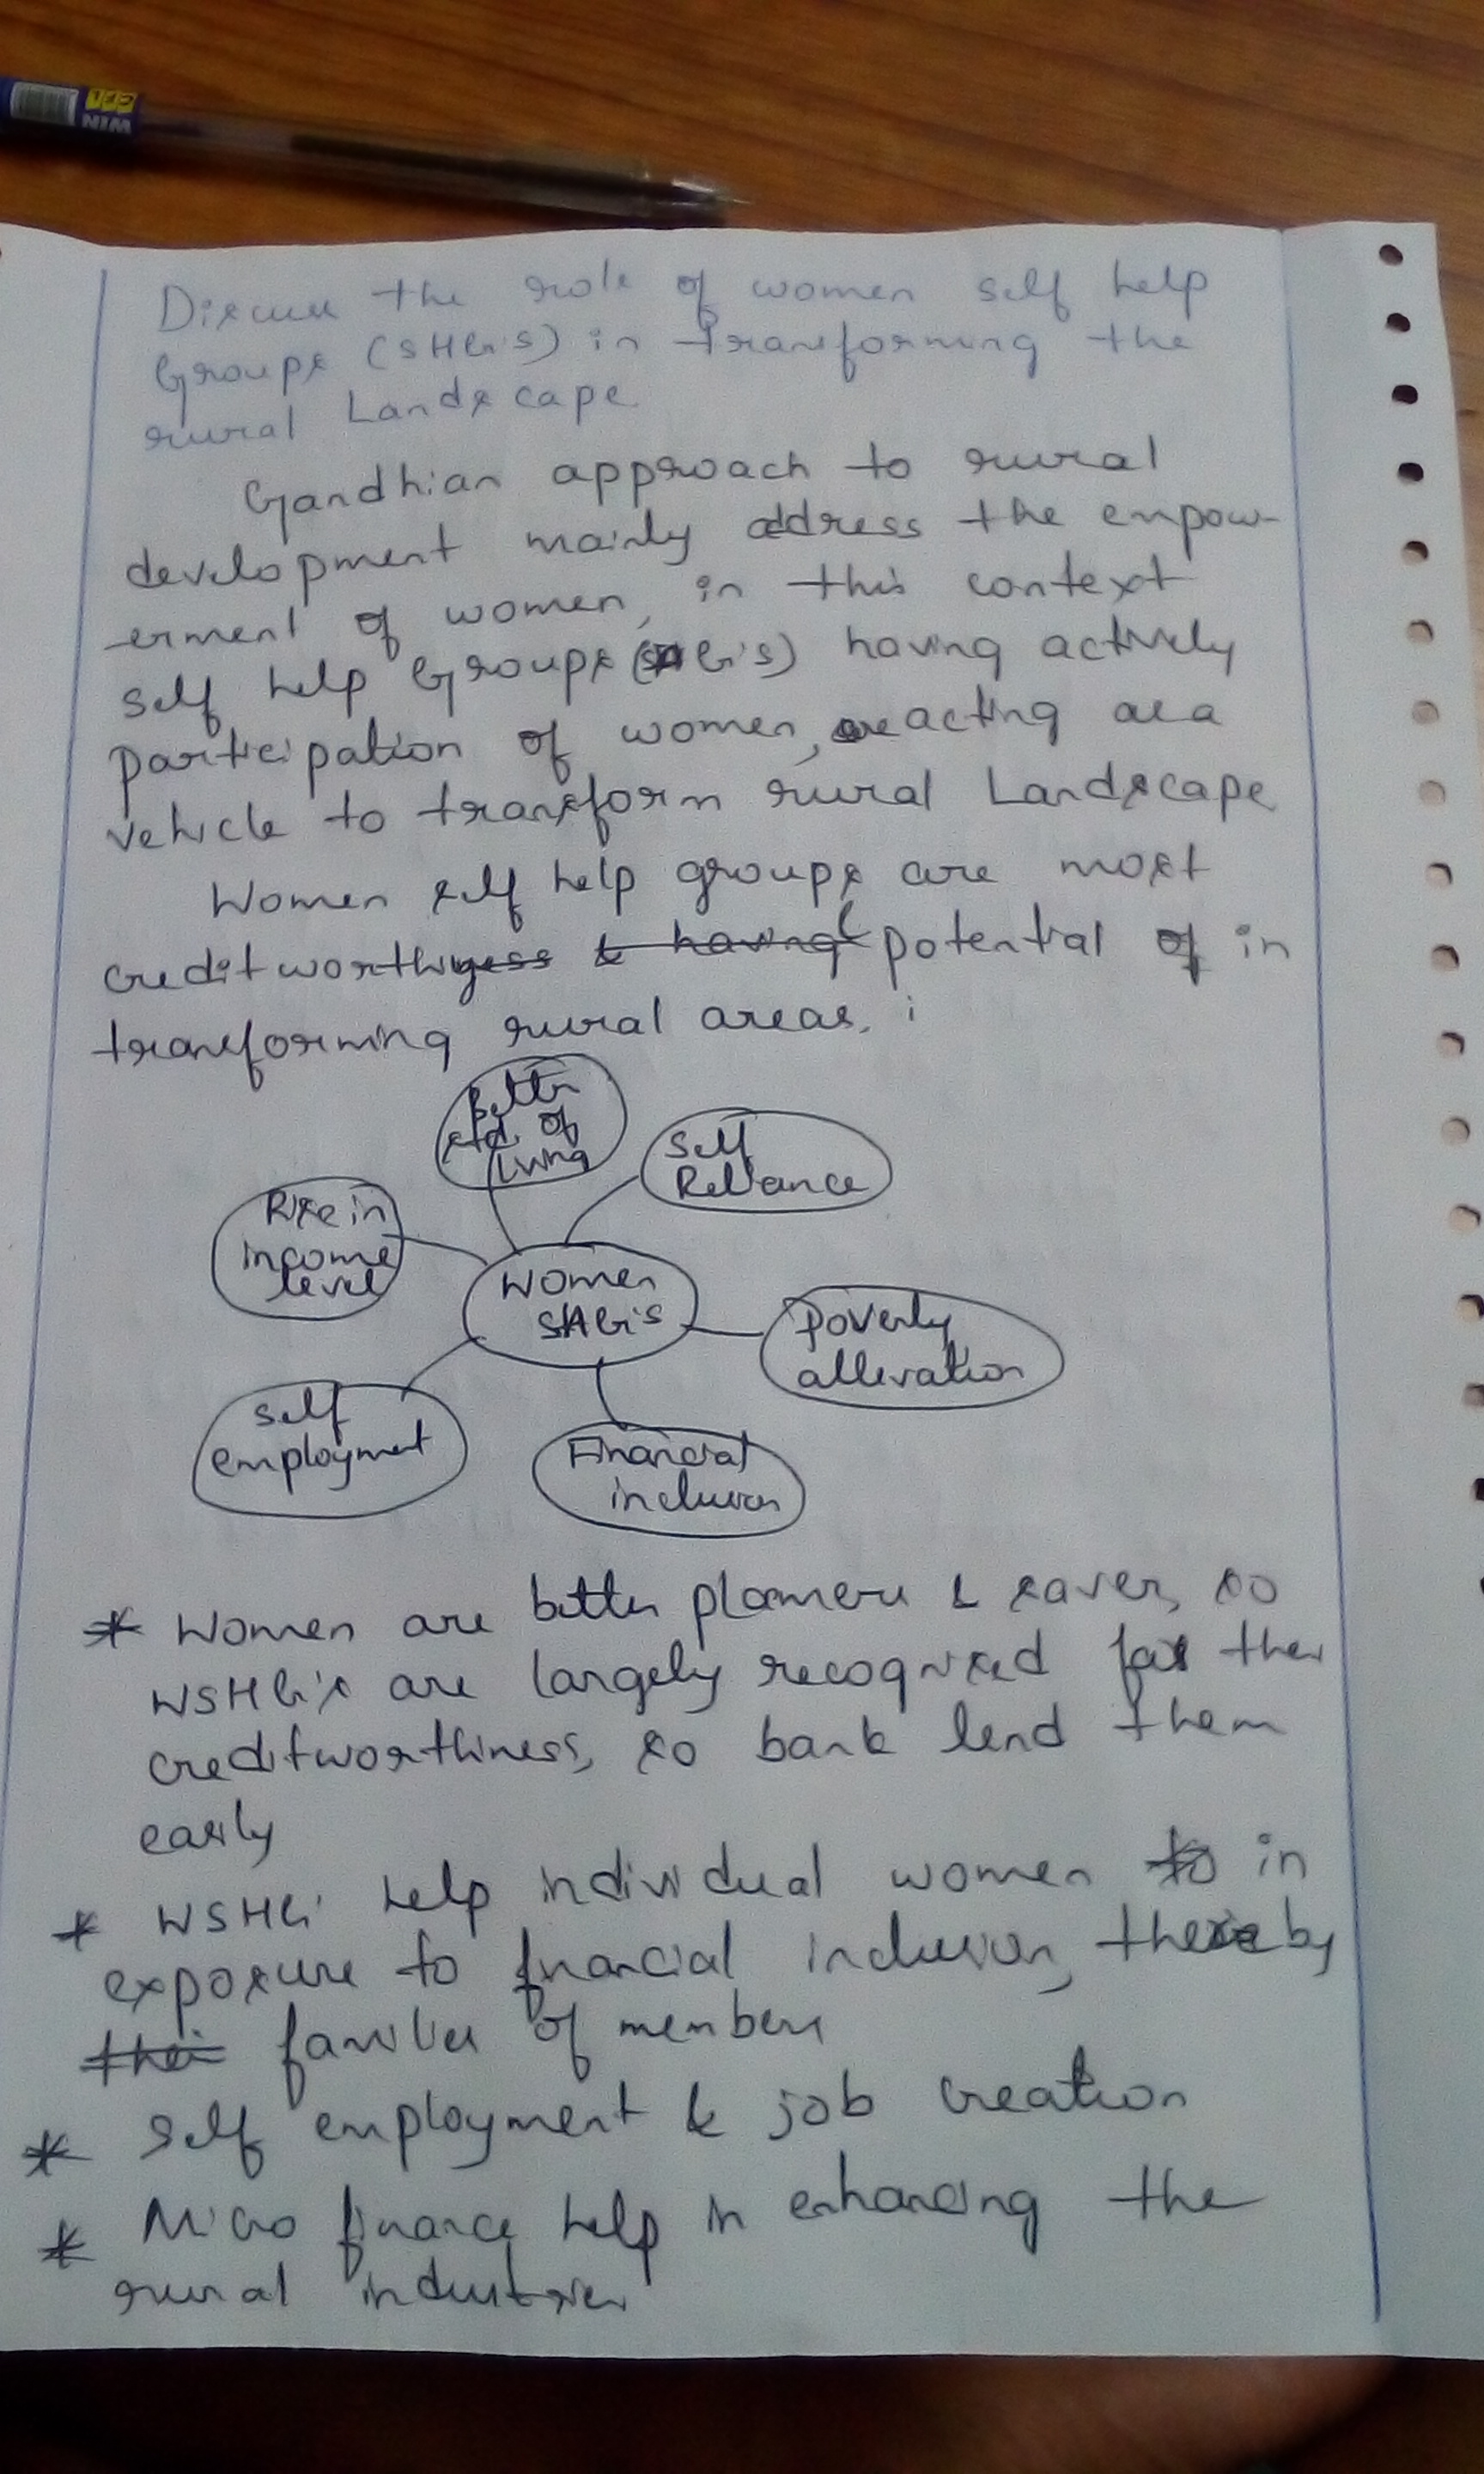 WIN
Discuss the role of women self help
Groups (SHG's) in transforming the
rural Landscape
Gandhian approach to rural
development mainly address the empow-
erment of women, in this context
self help Groups (SHG's) having actively
participation of women, are acting as a
vehicle to transform rural Landscape
Women self help groups are most
creditworthyness & having potential of in
transforming rural areas.
Better
std. of
Living
Self
Reliance
Rise in
income
level
Women
SHG's
Poverty
alleviation
Self
employment
Financial
inclusion
* Women are better planners & saver, so
WSHG's are largely recognised for their
creditworthiness, so bank lend them
easily
* WSHG help individual women to in
exposure to financial inclusion, thereby
their families of members
* Self employment & job creation
* Micro finance help in enhancing the
rural industries